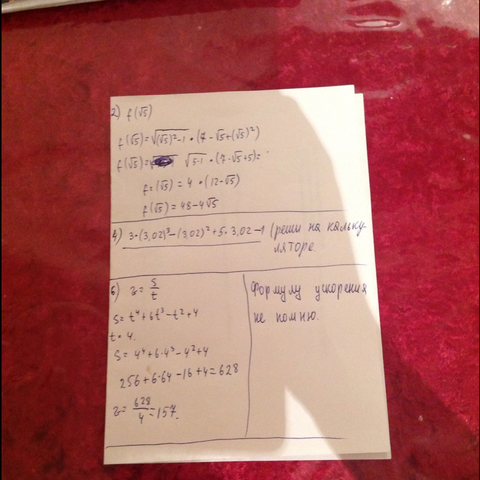 2) f(√5)
f(√5)=√((√5)²-1) • (7-√5+(√5)²)
f(√5)= √5-1 • (7-√5+5)=
f=(√5) = 4 • (12-√5)
f(√5) = 48-4√5
4) 3•(3,02)³-(3,02)²+5•3,02-1 (реши на кальку-
ляторе
6) v = S/t
S=t⁴+6t³-t²+4
t=4.
S=4⁴+6•4³-4²+4
256+6•64-16+4=628
v=628/4=157.
Формулу ускорения
не помню.